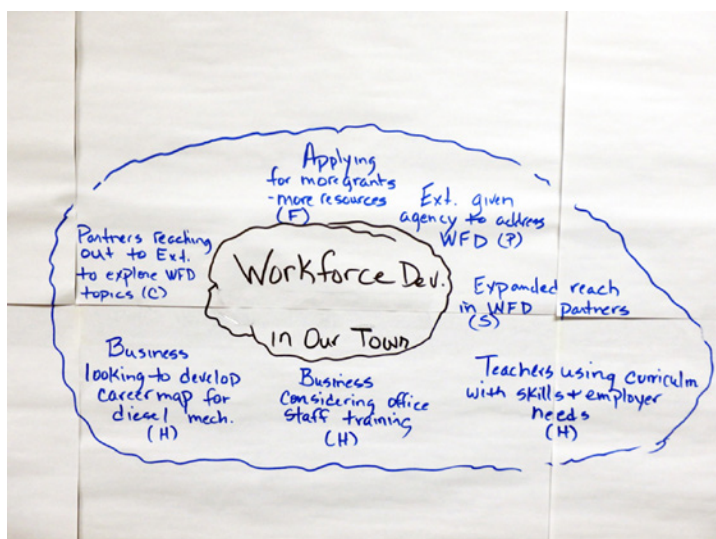 Applying
for more grants
- more resources
(F)
Ext. given
agency to address
WFD (?)
Partners reaching
out to Ext.
to explore WFD
topics (C)
Workforce Dev.
in Our Town
Expanded reach
in WFD partners
(S)
Business
looking to develop
career map for
diesel mech.
(H)
Business
considering office
staff training
(H)
Teachers using curriculm
with skills + employer
needs
(H)